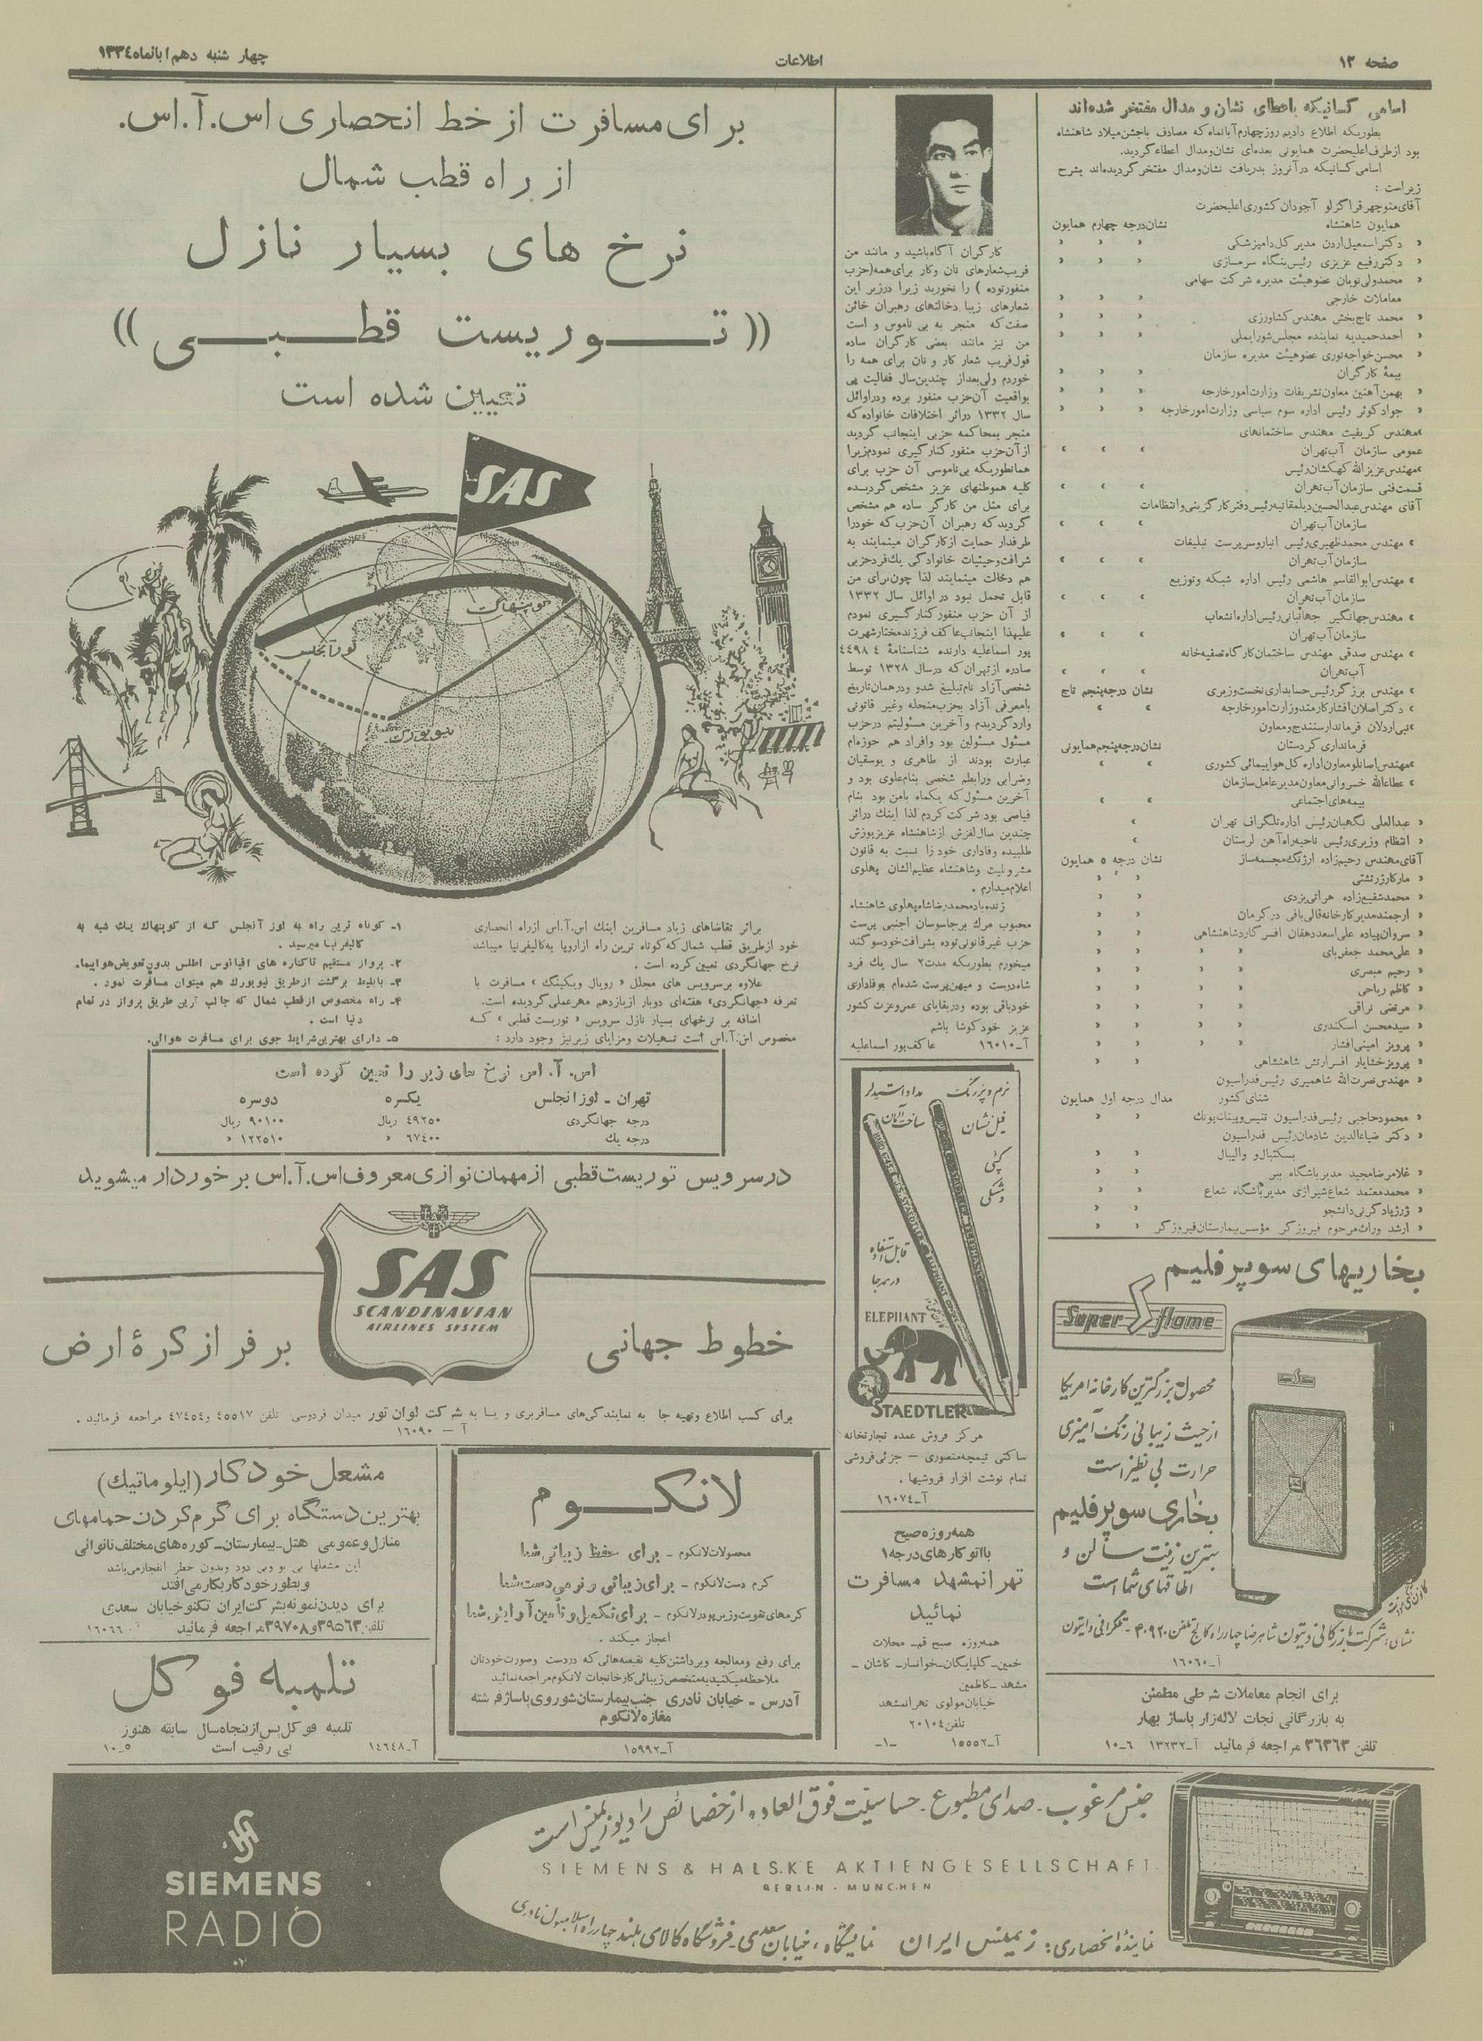 صفحه ۱۲
اطلاعات
چهار شنبه دهم ابانماه ۱۳۳٤
اسامی کسانیکه باعطای نشان و مدال مفتخر شده‌اند
بطوریکه اطلاع دادیم روز چهارم آبانماه که مصادف باجشن میلاد شاهنشاه
بود از طرف اعلیحضرت همایونی بعده‌ای نشان و مدال اعطاء گردید.
اسامی کسانیکه در آنروز بدریافت نشان و مدال مفتخر گردیده‌اند بشرح
زیر است :
آقای منوچهر قراگزلو آجودان کشوری اعلیحضرت
همایون شاهنشاه نشان درجه چهارم همایون
« دکتر اسمعیل اردن مدیر کل دامپزشکی « « «
« دکتر رفیع عزیزی رئیس بنگاه سرم‌سازی « « «
« محمدولی نویان عضو هیئت مدیره شرکت سهامی
معاملات خارجی « « «
« محمد تاج‌بخش مهندس کشاورزی « « «
« احمد حمیدیه نماینده مجلس شورایملی « « «
« محسن خواجه نوری عضو هیئت مدیره سازمان
بیمهٔ کارگران « « «
« بهمن آهنین معاون تشریفات وزارت امور خارجه « « «
« جواد کوثر رئیس اداره سوم سیاسی وزارت امور خارجه « « «
«مهندس کریفیت مهندس ساختمانهای
عمومی سازمان آب تهران « « «
«مهندس عزیزالله کهکشان رئیس
قسمت فنی سازمان آب تهران « « «
آقای مهندس عبدالحسین دیلمقانیه رئیس دفتر کارگزینی و انتظامات
سازمان آب تهران « « «
« مهندس محمد ظهیری رئیس انبار و سرپرست تبلیغات
سازمان آب تهران « « «
« مهندس ابوالقاسم هاشمی رئیس اداره شبکه و توزیع
سازمان آب تهران « « «
« مهندس جهانگیر جهانبانی رئیس اداره انشعاب
سازمان آب تهران « « «
« مهندس صدقی مهندس ساختمان کارگاه تصفیه خانه
آب تهران « « «
« مهندس برزگر رئیس حسابداری نخست وزیری نشان درجه پنجم تاج
« دکتر اصلان افشار کارمند وزارت امور خارجه « «
«نبی اردلان فرماندار سنندج و معاون
فرمانداری کردستان نشان درجه پنجم همایونی
«مهندس اصانلو معاون اداره کل هواپیمائی کشوری « «
« عطاءالله خسروانی معاون مدیر عامل سازمان
بیمه های اجتماعی « «
« عبدالعلی نگهبان رئیس اداره تلگراف تهران «
« انتظام وزیری رئیس ناحیه راه آهن لرستان «
آقای مهندس رحیم زاده ارژنگ مجسمه ساز نشان درجه ۵ همایون
« مارکار زرتشتی « «
« محمد شفیع زاده هراتی یزدی « «
« ارجمند مدیر کارخانه قالی بافی در کرمان « «
« سروان پیاده علی اسعد دهقان افسر گارد شاهنشاهی « «
« علی محمد جعفر بای « «
« رحیم مبصری « «
« کاظم ریاحی « «
« مرتضی نراقی « «
« سید محسن اسکندری « «
« پرویز امینی افشار « «
« پرویز خشایار افسر ارتش شاهنشاهی « «
«مهندس نصرت الله شاهمیری رئیس فدراسیون
شنای کشور مدال درجه اول همایون
« محمود حاجبی رئیس فدراسیون تنیس و پینک پونک « «
« دکتر ضیاءالدین شادمان رئیس فدراسیون
بسکتبال و والیبال « «
« غلامرضا مجید مدیر باشگاه ببر « «
« محمد معتمد شعاع شیرازی مدیر باشگاه شعاع « «
« ژرژ پادگرنی دانشجو « «
« ارشد وراث مرحوم فیروزگر مؤسس بیمارستان فیروزگر « «
کارگران آگاه باشید و مانند من
فریب شعارهای نان و کار برای همه (حزب
منفور توده ) را نخورید زیرا در زیر این
شعارهای زیبا دخالتهای رهبران خائن
صفت که منجر به بی ناموس و است
من نیز مانند بعضی کارگران ساده
قول فریب شعار کار و نان برای همه را
خوردم ولی بعد از چندین سال فعالیت پی
بواقعیت آن حزب منفور برده و در اوائل
سال ۱۳۳۲ در اثر اختلافات خانواده که
منجر بمحاکمه حزبی اینجانب گردید
از آن حزب منفور کنار گیری نمودم زیرا
همانطوریکه بی ناموسی آن حزب برای
کلیه هموطنهای عزیز مشخص گردیده
برای مثل من کارگر ساده هم مشخص
گردید که رهبران آن حزب که خود را
طرفدار حمایت از کارگران مینمایند به
شرافت و حیثیات خانوادگی یک فرد حزبی
هم دخالت مینمایند لذا چون برای من
قابل تحمل نبود در اوائل سال ۱۳۳۲
از آن حزب منفور کنار گیری نمودم
علیهذا اینجانب عاکف فرزند مختار شهرت
پور اسماعلیه دارنده شناسنامهٔ ٤٤۹۸٤
صادره از تهران که در سال ۱۳۲۸ توسط
شخصی آزاد نام تبلیغ شد و در همان تاریخ
بامعرفی آزاد بحزب منحله و غیر قانونی
وارد گردیدم و آخرین مسئولیتم در حزب
مسئول مسئولین بود و افراد هم حوزه‌ام
عبارت بودند از طاهری و یوسفیان
و ضرابی و رابطم شخصی بنام علوی بود و
آخرین مسئول که یکماه بامن بود بنام
قیاسی بود شرکت کردم لذا اینک در اثر
چندین سال لغزش از شاهنشاه عزیز پوزش
طلبیده وفاداری خود را نسبت به قانون
مشروطیت و شاهنشاه عظیم الشان پهلوی
اعلام میدارم .
زنده باد محمد رضا شاه پهلوی شاهنشاه
محبوب مرک بر جاسوسان اجنبی پرست
حزب غیر قانونی توده بشرافت خود سوگند
میخورم بطوریکه مدت ۲ سال یک فرد
شاه دوست و میهن پرست شده‌ام بوفاداری
خود باقی بوده و در بقایای عمر و عزت کشور
عزیز خود کوشا باشم
آ-۱۶۰۱۰ عاکف پور اسماعلیه
برای مسافرت از خط انحصاری اس.آ.اس.
از راه قطب شمال
نرخ های بسیار نازل
((تــوریست قطــبــی))
تعیین شده است
SAS
کوپنهاگ
لوزآنجلس
نیویورک
براثر تقاضاهای زیاد مسافرین اینک اس.آ.اس ازراه انحصاری
خود از طریق قطب شمال که کوتاه ترین راه از اروپا به کالیفرنیا میباشد
نرخ جهانگردی تعیین کرده است .
علاوه بر سرویس های مجلل « رویال ویکینگ » مسافرت با
تعرفه «جهانگردی» هفته‌ای دوبار از یازدهم مهر عملی گردیده است.
اضافه بر نرخهای بسیار نازل سرویس « توریست قطبی » که
مخصوص اس.آ.اس است تسهیلات و مزایای زیر نیز وجود دارد :
۱- کوتاه ترین راه به لوز آنجلس که از کوپنهاک یک شبه به
کالیفرنیا میرسید .
۲- پرواز مستقیم تا کناره های اقیانوس اطلس بدون تعویض هواپیما.
۳- بابلیط برگشت از طریق نیویورک هم میتوان مسافرت نمود .
٤- راه مخصوص از قطب شمال که جالب ترین طریق پرواز در تمام
دنیا است .
۵- دارای بهترین شرایط جوی برای مسافرت هوائی.
اس. آ. اس نرخ های زیر را تعیین کرده است
تهران - لوزانجلس یکسره دوسره
درجه جهانگردی ٤۹۲۵۰ ریال ۹۰۱۰۰ ریال
درجه یک ۶۷٤۰۰ « ۱۲۲۵۱۰ «
در سرویس توریست قطبی از مهمان نوازی معروف اس.آ.اس بر خوردار میشوید
SAS
SCANDINAVIAN
AIRLINES SYSTEM
خطوط جهانی بر فراز کرهٔ ارض
برای کسب اطلاع و تهیه جا به نمایندگی‌های مسافربری و یا به شرکت لوان تور میدان فردوسی تلفن ٤۵۵۱۷ و ٤۷٤۵٤ مراجعه فرمائید .
آ - ۱۶۰۹۰
نرم و پررنگ
مداد استدلر
فیل نشان
ساخت آلمان
کپی
و مشکی
قابل استفاده
در همه جا
ELEPHANT
STAEDTLER
مرکز فروش عمده تجارتخانه
ساکتی تیمچه منصوری - جزئی فروشی
تمام نوشت افزار فروشیها .
آ-۱۶۰۷٤
همه روزه صبح
با اتوکارهای درجه ۱
تهران مشهد مسافرت
نمائید
همه روزه صبح قم- محلات
خمین-گلپایگان-خوانسار- کاشان -
مشهد -کاظمین
خیابان مولوی تهرانمشهد
تلفن ۲۰۱۰٤
آ-۱۵۵۵۲ -۱-
بخاریهای سوپر فلیم
Super flame
محصول بزرگترین کارخانه امریکا
از حیث زیبائی رنگ آمیزی
حرارت بی نظیر است
بخاری سوپر فلیم
بهترین زینت سالن و
اطاقهای شما است
نشانی: شرکت بازرگانی دیتون شاهرضا چهارراه کالج تلفن ٤۰۹۲۰ - تلگرافی دایتون
آ-۱۶۰۶۰
برای انجام معاملات شرطی مطمئن
به بازرگانی نجات لاله زار پاساژ بهار
تلفن ۳۶۳۶۳ مراجعه فرمائید آ-۱۳۲۳۲ ۶-۱۰
لانکــوم
محصولات لانکوم - برای حفظ زیبائی شما
کرم دست لانکوم - برای زیبائی و نرمی دست شما
کرمهای تقویت و زیر پودر لانکوم - برای تکمیل و تأمین آرایش شما
اعجاز میکند .
برای رفع و معالجه و برداشتن کلیه نقیصه هائی که در دست و صورت خودتان
ملاحظه میکنید به متخصص زیبائی کارخانجات لانکوم مراجعه نمائید
آدرس - خیابان نادری جنب بیمارستان شوروی پاساژ فرشته
مغازه لانکوم
آ-۱۵۹۹۲
مشعل خودکار (ایلوماتیک)
بهترین دستگاه برای گرم کردن حمامهای
منازل و عمومی هتل-بیمارستان-کوره های مختلف نانوائی
این مشعلها بی بو و بی دود و بدون خطر انفجار میباشد
و بطور خودکار بکار می افتد
برای دیدن نمونه بشرکت ایران تکنو خیابان سعدی
تلفن ۳۹۵۶۳ و ۳۹۷۰۸ مراجعه فرمائید آ-۱۶۰۶۶
تلمبه فو کل
تلمبه فو کل پس از پنجاه سال سابقه هنوز
بی رقیب است
آ-۱٤۶٤۸ ۵-۱۰
جنس مرغوب - صدای مطبوع - حساسیت فوق العاده از خصائص رادیو زیمنس است
SIEMENS & HALSKE AKTIENGESELLSCHAFT
BERLIN · MUNCHEN
نماینده انحصاری: زیمنس ایران نمایشگاه: خیابان سعدی - فروشگاه کالای هلند چهارراه اسلامبول نادری
SIEMENS
RADIO